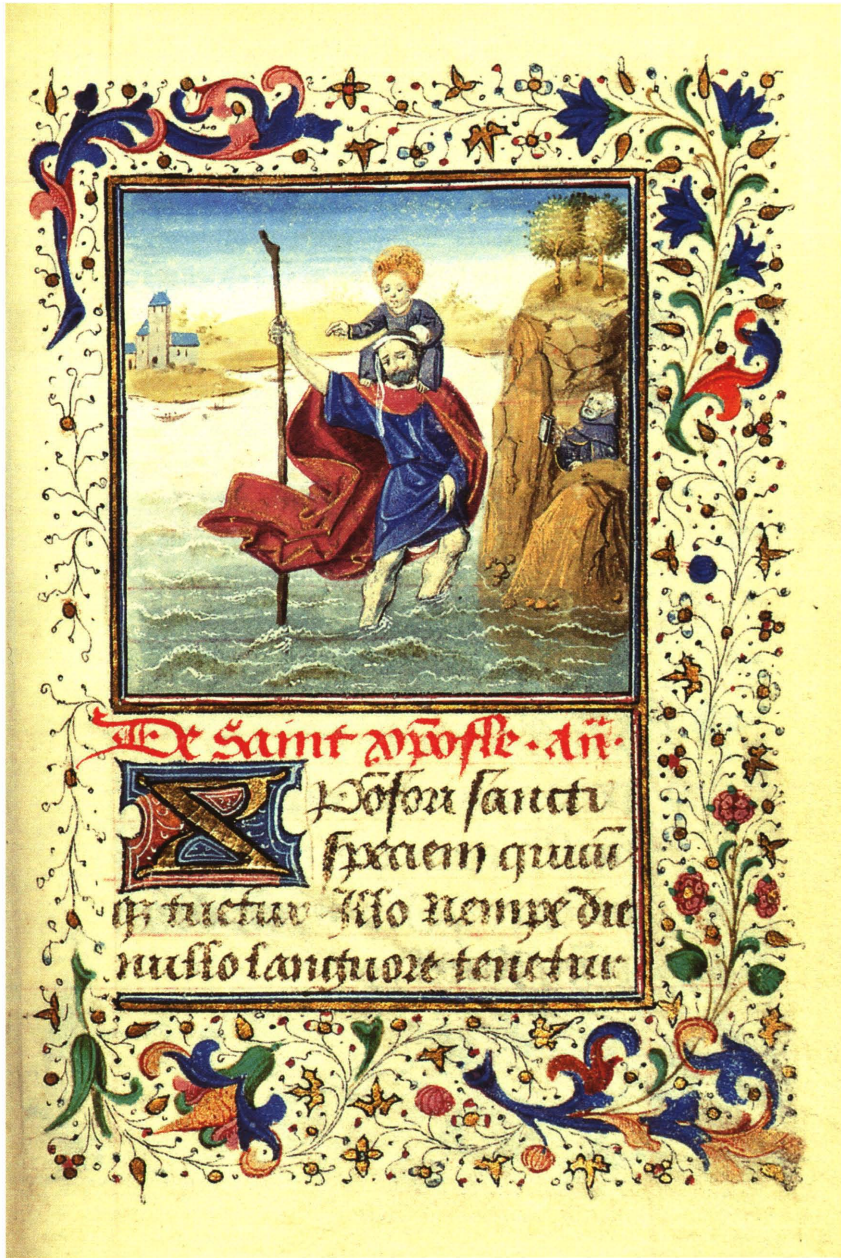 De Saint xp̄ofle · an̄ ·
Xp̄ofori sancti
speciem quicū
qꝫ tuetur Illo nempe die
nullo languore tenetur